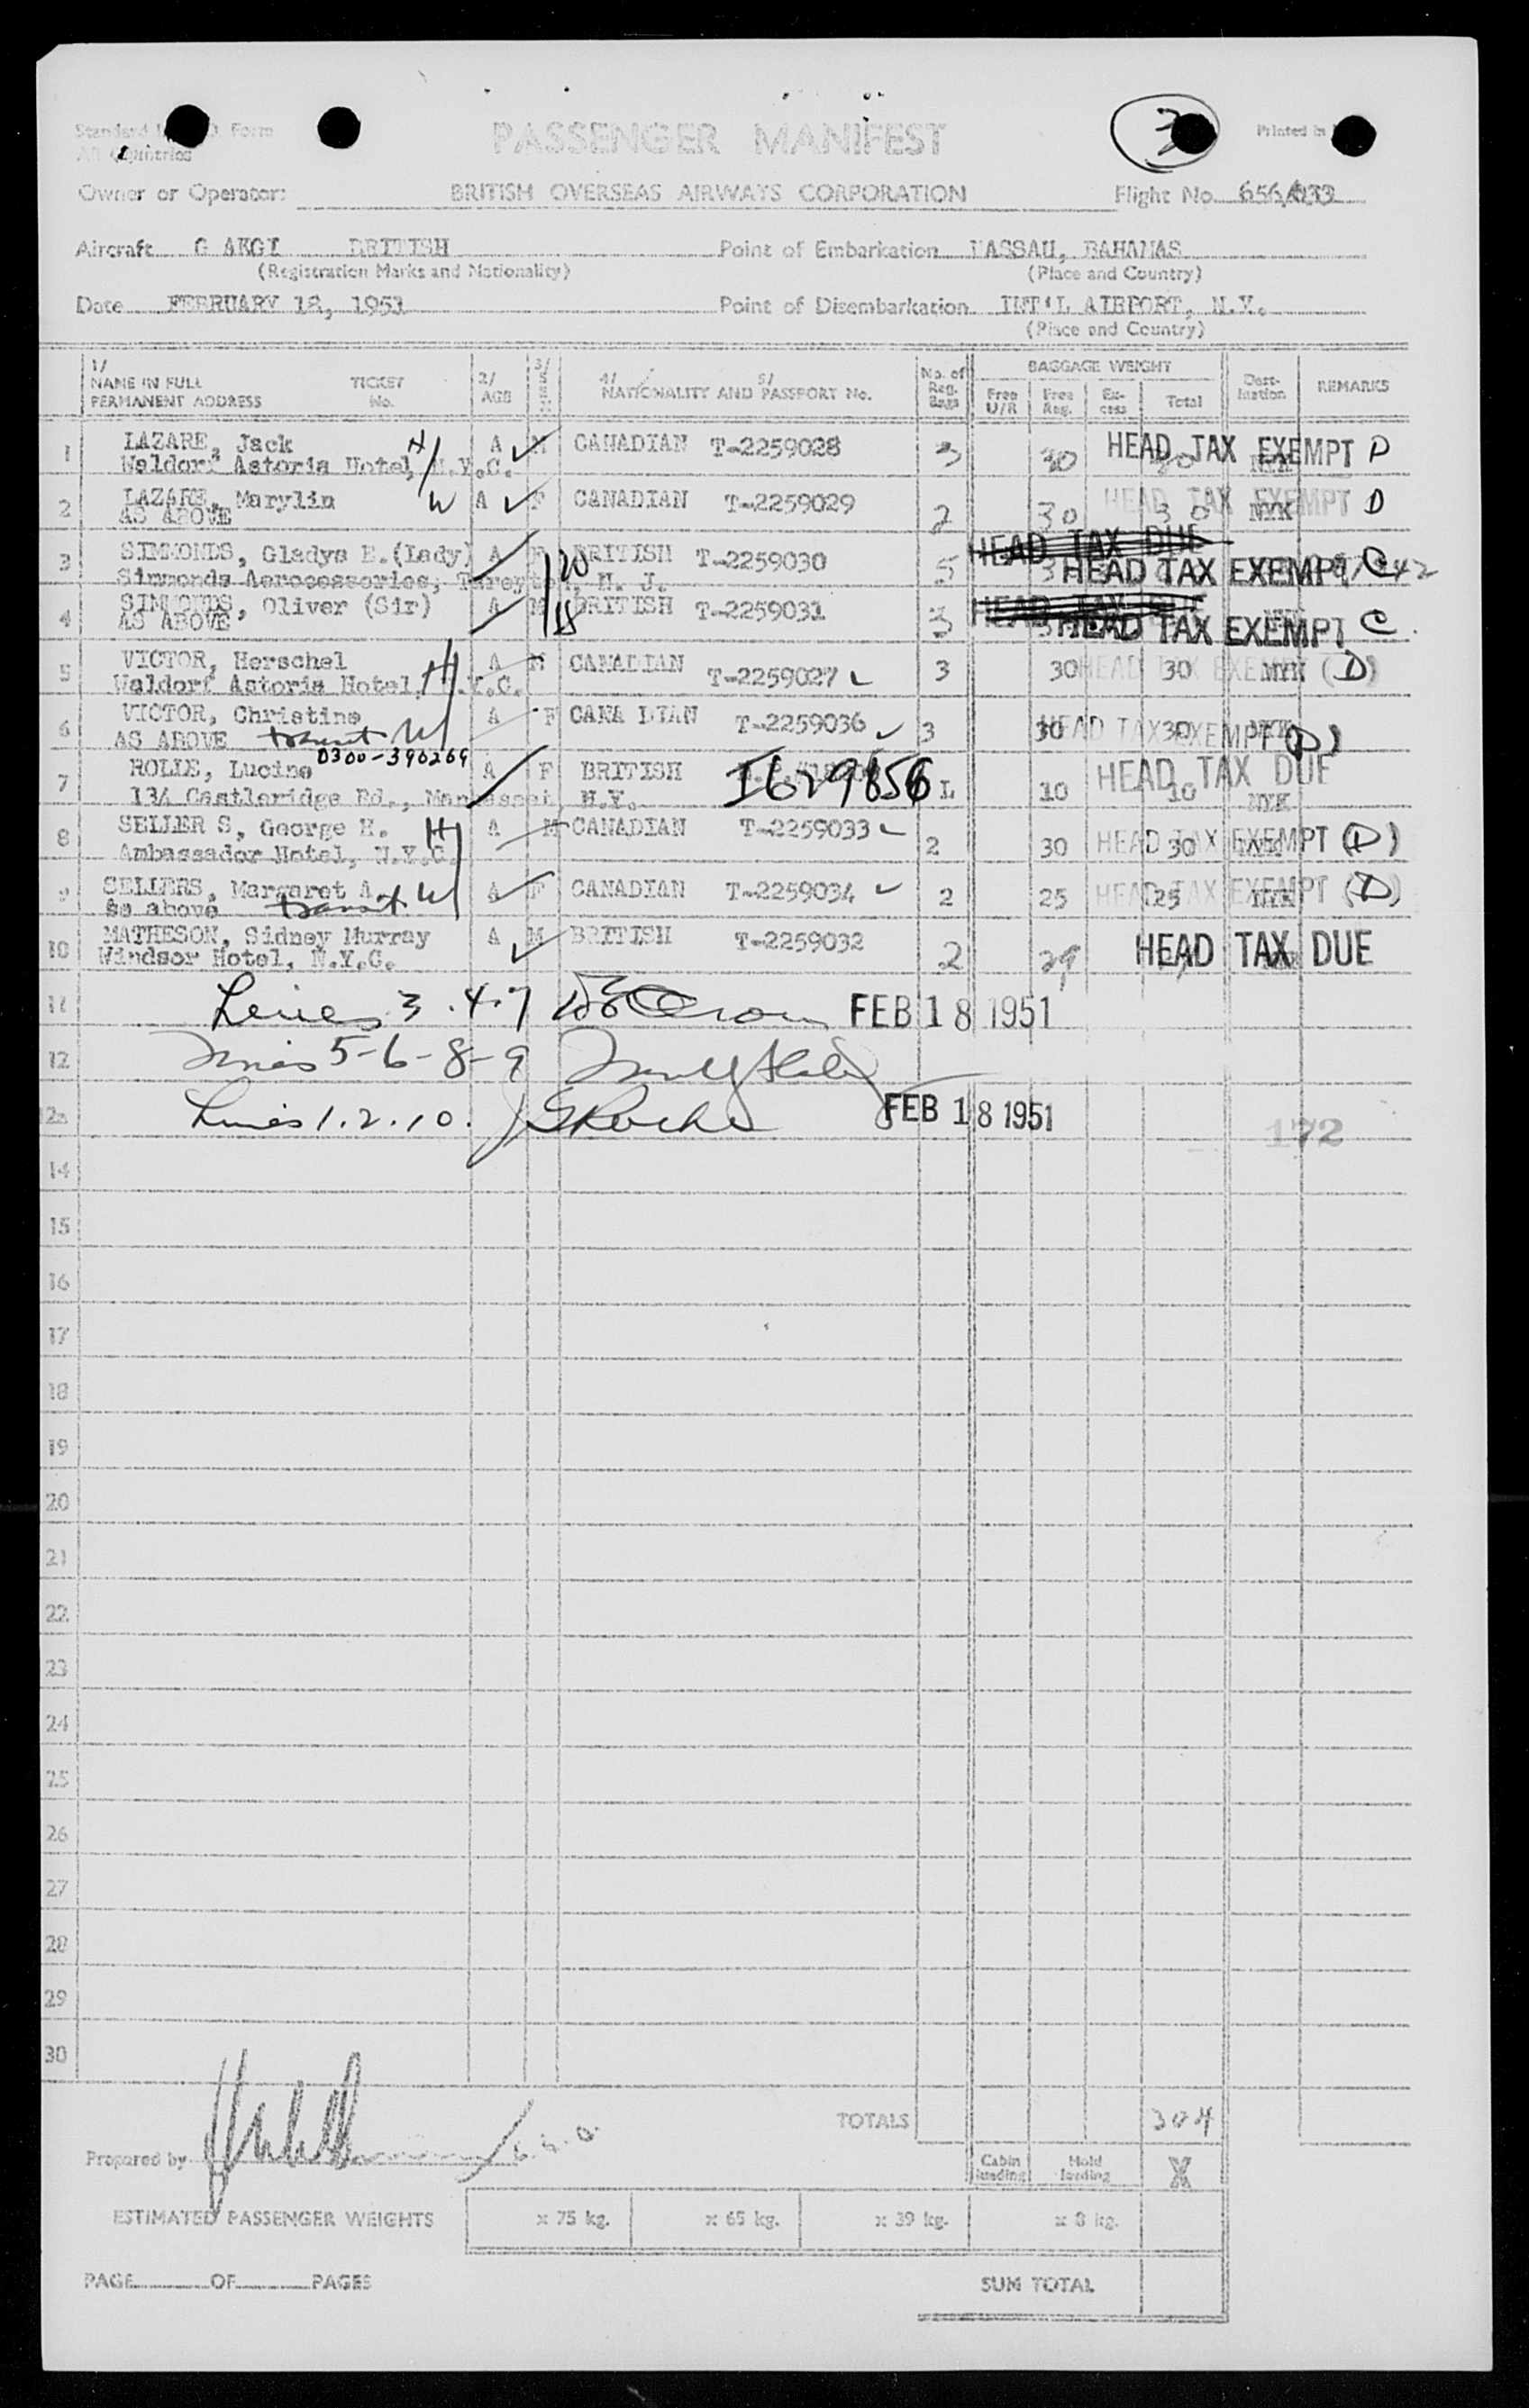 PASSENGER MANIFEST
Standard Form
All Countries
3
Printed in
Owner or Operator: BRITISH OVERSEAS AIRWAYS CORPORATION Flight No. 656/
Aircraft G AKGI BRITISH Point of Embarkation NASSAU, BAHAMAS
(Registration Marks and Nationality) (Place and Country)
Date FEBRUARY 18, 1951 Point of Disembarkation INT'L AIRPORT, N.Y.
(Place and Country)
1/ NAME IN FULL PERMANENT ADDRESS TICKET No. 2/ AGE 3/ SEX 4/ 5/ NATIONALITY AND PASSPORT No. No. of Reg. Bags BAGGAGE WEIGHT Free U/R Free Reg. Ex-cess Total Dest-ination REMARKS
1 LAZARE, Jack H A M CANADIAN T-2259028 3 30 30 NYK HEAD TAX EXEMPT D
Waldorf Astoria Hotel, N.Y.C.
2 LAZARE, Marylin W A F CANADIAN T-2259029 2 30 30 NYK HEAD TAX EXEMPT D
AS ABOVE
HEAD TAX DUE
3 SIMMONDS, Gladys E.(Lady) A F BRITISH T-2259030 5 HEAD TAX EXEMPT C
Simmonds Aerocessories, Tareytown, N. J.
4 SIMMONDS, Oliver (Sir) A M BRITISH T-2259031 3 HEAD TAX EXEMPT C
AS ABOVE
5 VICTOR, Herschel H A M CANADIAN T-2259027 3 30 30 NYK HEAD TAX EXEMPT (D)
Waldorf Astoria Hotel, N.Y.C.
6 VICTOR, Christine W A F CANA DIAN T-2259036 3 30 30 NYK HEAD TAX EXEMPT (D)
AS ABOVE transit
0300-390269
7 ROLLE, Lucine A F BRITISH I629856 L 10 10 NYK HEAD TAX DUE
134 Castleridge Rd., Manhasset, N.Y.
8 SELLER S, George H. H A M CANADIAN T-2259033 2 30 30 NYK HEAD TAX EXEMPT (D)
Ambassador Hotel, N.Y.C.
9 SELLERS, Margaret A. W A F CANADIAN T-2259034 2 25 25 NYK HEAD TAX EXEMPT (D)
As above transit
10 MATHESON, Sidney Murray A M BRITISH T-2259032 2 29 HEAD TAX DUE
Windsor Hotel, N.Y.C.
11 Lines 3.4.7 FEB 18 1951
12 Lines 5-6-8-9
12a Lines 1.2.10. FEB 18 1951
172
14
15
16
17
18
19
20
21
22
23
24
25
26
27
28
29
30
TOTALS 304
Prepared by
Cabin loading Hold loading X
ESTIMATED PASSENGER WEIGHTS x 75 kg. x 65 kg. x 39 kg. x 8 kg.
PAGE OF PAGES SUM TOTAL